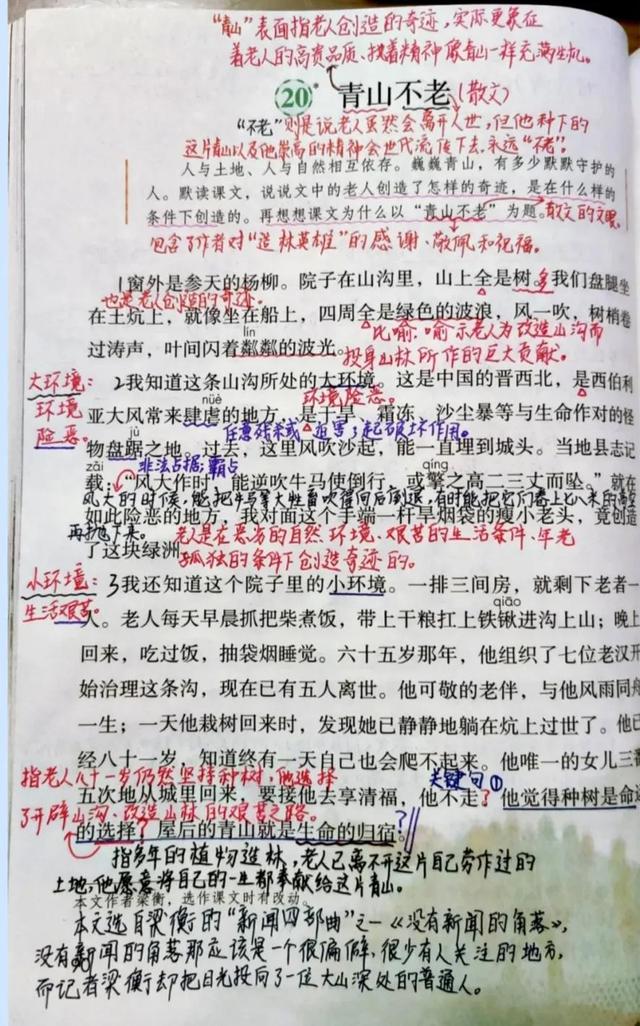 “青山”表面指老人创造的奇迹,实际更象征
着老人的高贵品质、执着精神像青山一样充满生机。
20* 青山不老(散文)
“不老”则是说老人虽然会离开人世,但他种下的
这片青山以及他崇高的精神会世代流传下去,永远“不老”。
人与土地、人与自然相互依存。巍巍青山,有多少默默守护的
人。默读课文,说说文中的老人创造了怎样的奇迹,是在什么样的
条件下创造的。再想想课文为什么以“青山不老”为题。散文的文眼
包含了作者对“造林英雄”的感谢、敬佩和祝福。
1窗外是参天的杨柳。院子在山沟里,山上全是树。我们盘腿坐
也是老人创造的奇迹。
在土炕上,就像坐在船上,四周全是绿色的波浪,风一吹,树梢卷
lín
比喻,喻示老人为改造山沟而
过涛声,叶间闪着粼粼的波光。
投身山林所作的巨大贡献。
大环境:
2我知道这条山沟所处的大环境。这是中国的晋西北,是西伯利
环境
nüè
环境险恶。
亚大风常来肆虐的地方,是干旱、霜冻、沙尘暴等与生命作对的怪
险恶。
jù
任意残杀或迫害;起破坏作用。
物盘踞之地。过去,这里风吹沙起,能一直埋到城头。当地县志记
zǎi
非法占据;霸占
qíng
载:“风大作时,能逆吹牛马使倒行,或擎之高二三丈而坠。”就在
风大的时候,能把牛马等大牲畜吹得向后倒退,有时能把它们卷上七八米的高空
如此险恶的地方,我对面这个手端一杆旱烟袋的瘦小老头,竟创造
再抛下来。
老人是在恶劣的自然环境、艰苦的生活条件、年老
了这块绿洲。
孤独的条件下创造奇迹的。
小环境:
3我还知道这个院子里的小环境。一排三间房,就剩下老者一
生活艰苦。
qiāo
人。老人每天早晨抓把柴煮饭,带上干粮扛上铁锹进沟上山;晚上
回来,吃过饭,抽袋烟睡觉。六十五岁那年,他组织了七位老汉开
始治理这条沟,现在已有五人离世。他可敬的老伴,与他风雨同舟
一生;一天他栽树回来时,发现她已静静地躺在炕上过世了。他已
经八十一岁,知道终有一天自己也会爬不起来。他唯一的女儿三番
指老人八十一岁仍然坚持种树,他选择
关键句①
五次地从城里回来,要接他去享清福,他不走。他觉得种树是命运
了开辟山沟、改造山林的艰苦之路。
的选择,屋后的青山就是生命的归宿。
指多年的植物造林,老人已离不开这片自己劳作过的
土地,他愿意将自己的一生都奉献给这片青山。
本文作者梁衡,选作课文时有改动。
本文选自梁衡的“新闻四部曲”之一《没有新闻的角落》,
没有新闻的角落那应该是一个很偏僻,很少有人关注的地方,
而记者梁衡却把目光投向了一位大山深处的普通人。